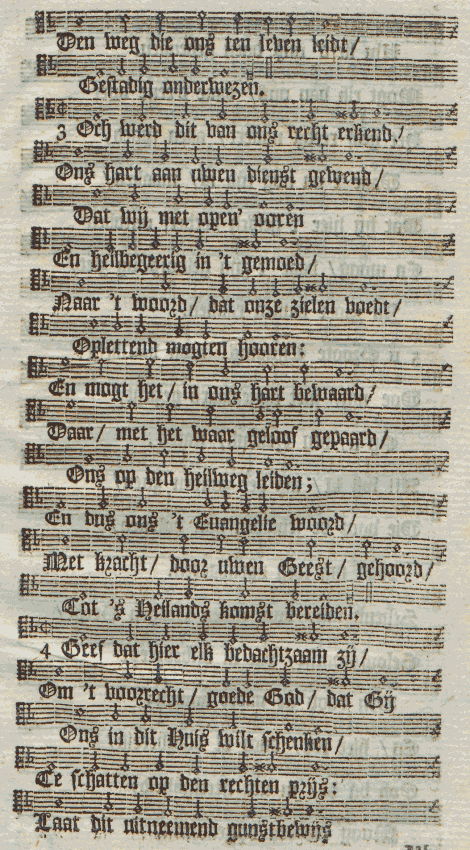 Den weg die ons ten leven leidt/
Gestadig onderwezen.
3 Och werd dit van ons recht erkend/
Ons hart aan uwen dienst gewend/
Dat wij met open' ooren
En heilbegeerig in 't gemoed/
Naar 't woord/ dat onze zielen voedt/
Oplettend mogten hooren:
En mogt het/ in ons hart bewaard/
Daar/ met het waar geloof gepaard/
Ons op den heilweg leiden;
En dus ons 't Euangelie woord/
Met kracht/ door uwen Geest/ gehoord/
Tot 's Heilands komst bereiden.
4 Geef dat hier elk bedachtzaam zij/
Om 't voorrecht/ goede God/ dat Gij
Ons in dit Huis wilt schenken/
Te schatten op den rechten prijs:
Laat dit uitneemend gunstbewijs